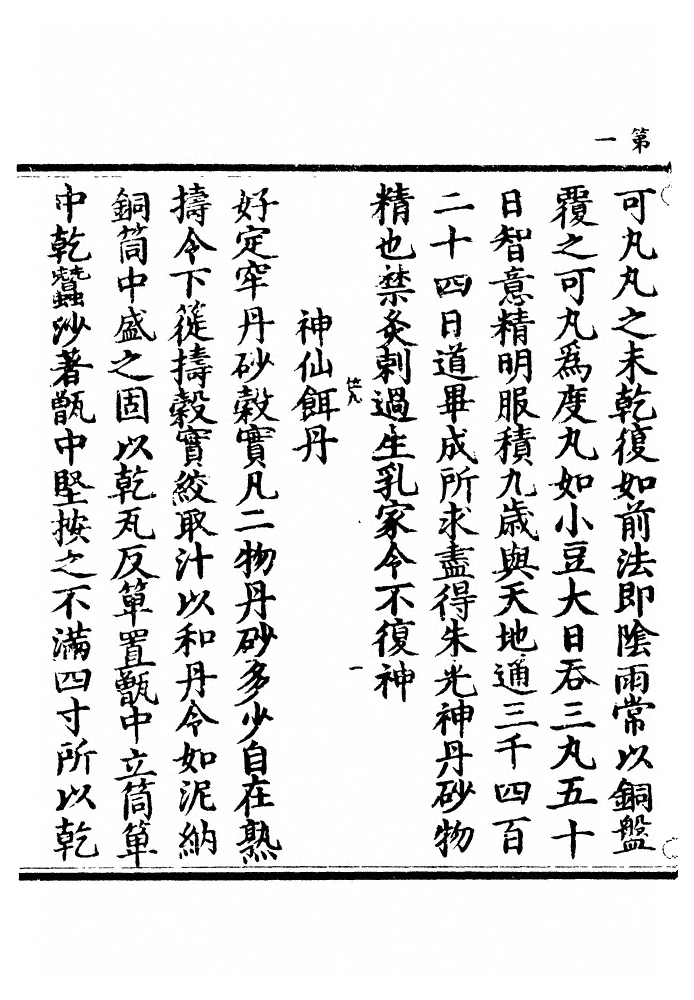 第一
可丸丸之未乾復如前法即陰雨常以銅盤
覆之可丸為度丸如小豆大日吞三丸五十
日智意精明服積九歲與天地通三千四百
二十四日道畢成所求盡得朱光神丹砂物
精也禁灸刺過生乳家令不復神
神仙餌丹
好定穼丹砂穀實凡二物丹砂多少自在熟
擣令下篵擣穀實絞取汁以和丹令如泥納
銅筒中盛之固以乾瓦反箄置甑中立筒箄
中乾蠶沙著甑中堅按之不滿四寸所以乾